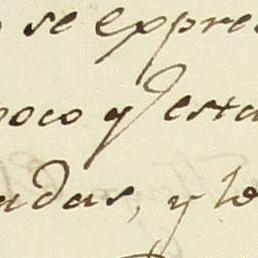 se expre
poco y esta
adas, y lo